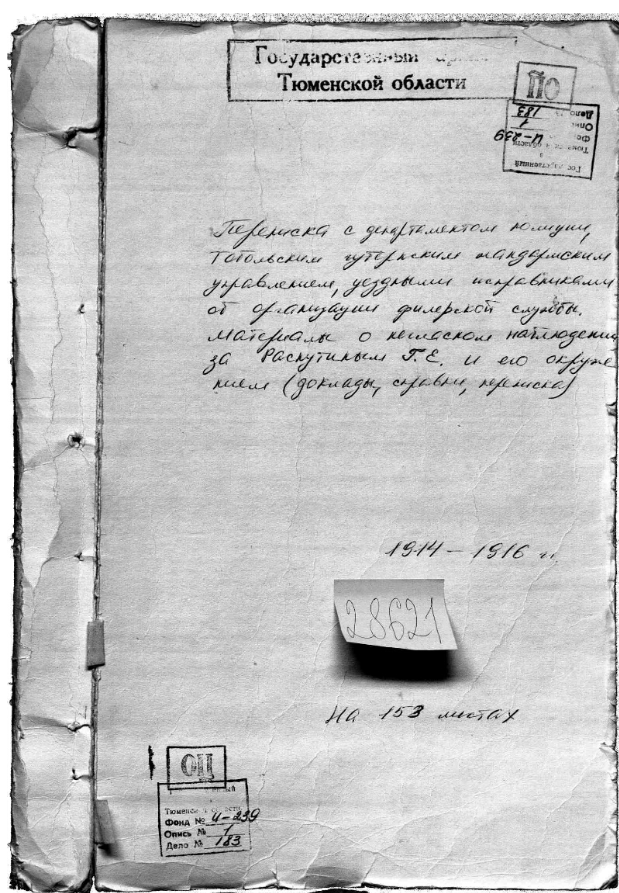 Государственный архив
Тюменской области
ПО
Государственный
Тюменской области
Фонд И-239
Опись 1
Дело № 183
Переписка с департаментом полиции,
Тобольским губернским жандармским
управлением, уездными исправниками
об организации филерской службы.
Материалы о негласном наблюдении
за Распутиным Г.Е. и его окруже
нием (доклады, справки, переписка)
1914 – 1916 гг.
28621
На 153 листах
ОЦ
Тюменской области
Фонд № И-239
Опись № 1
Дело № 183